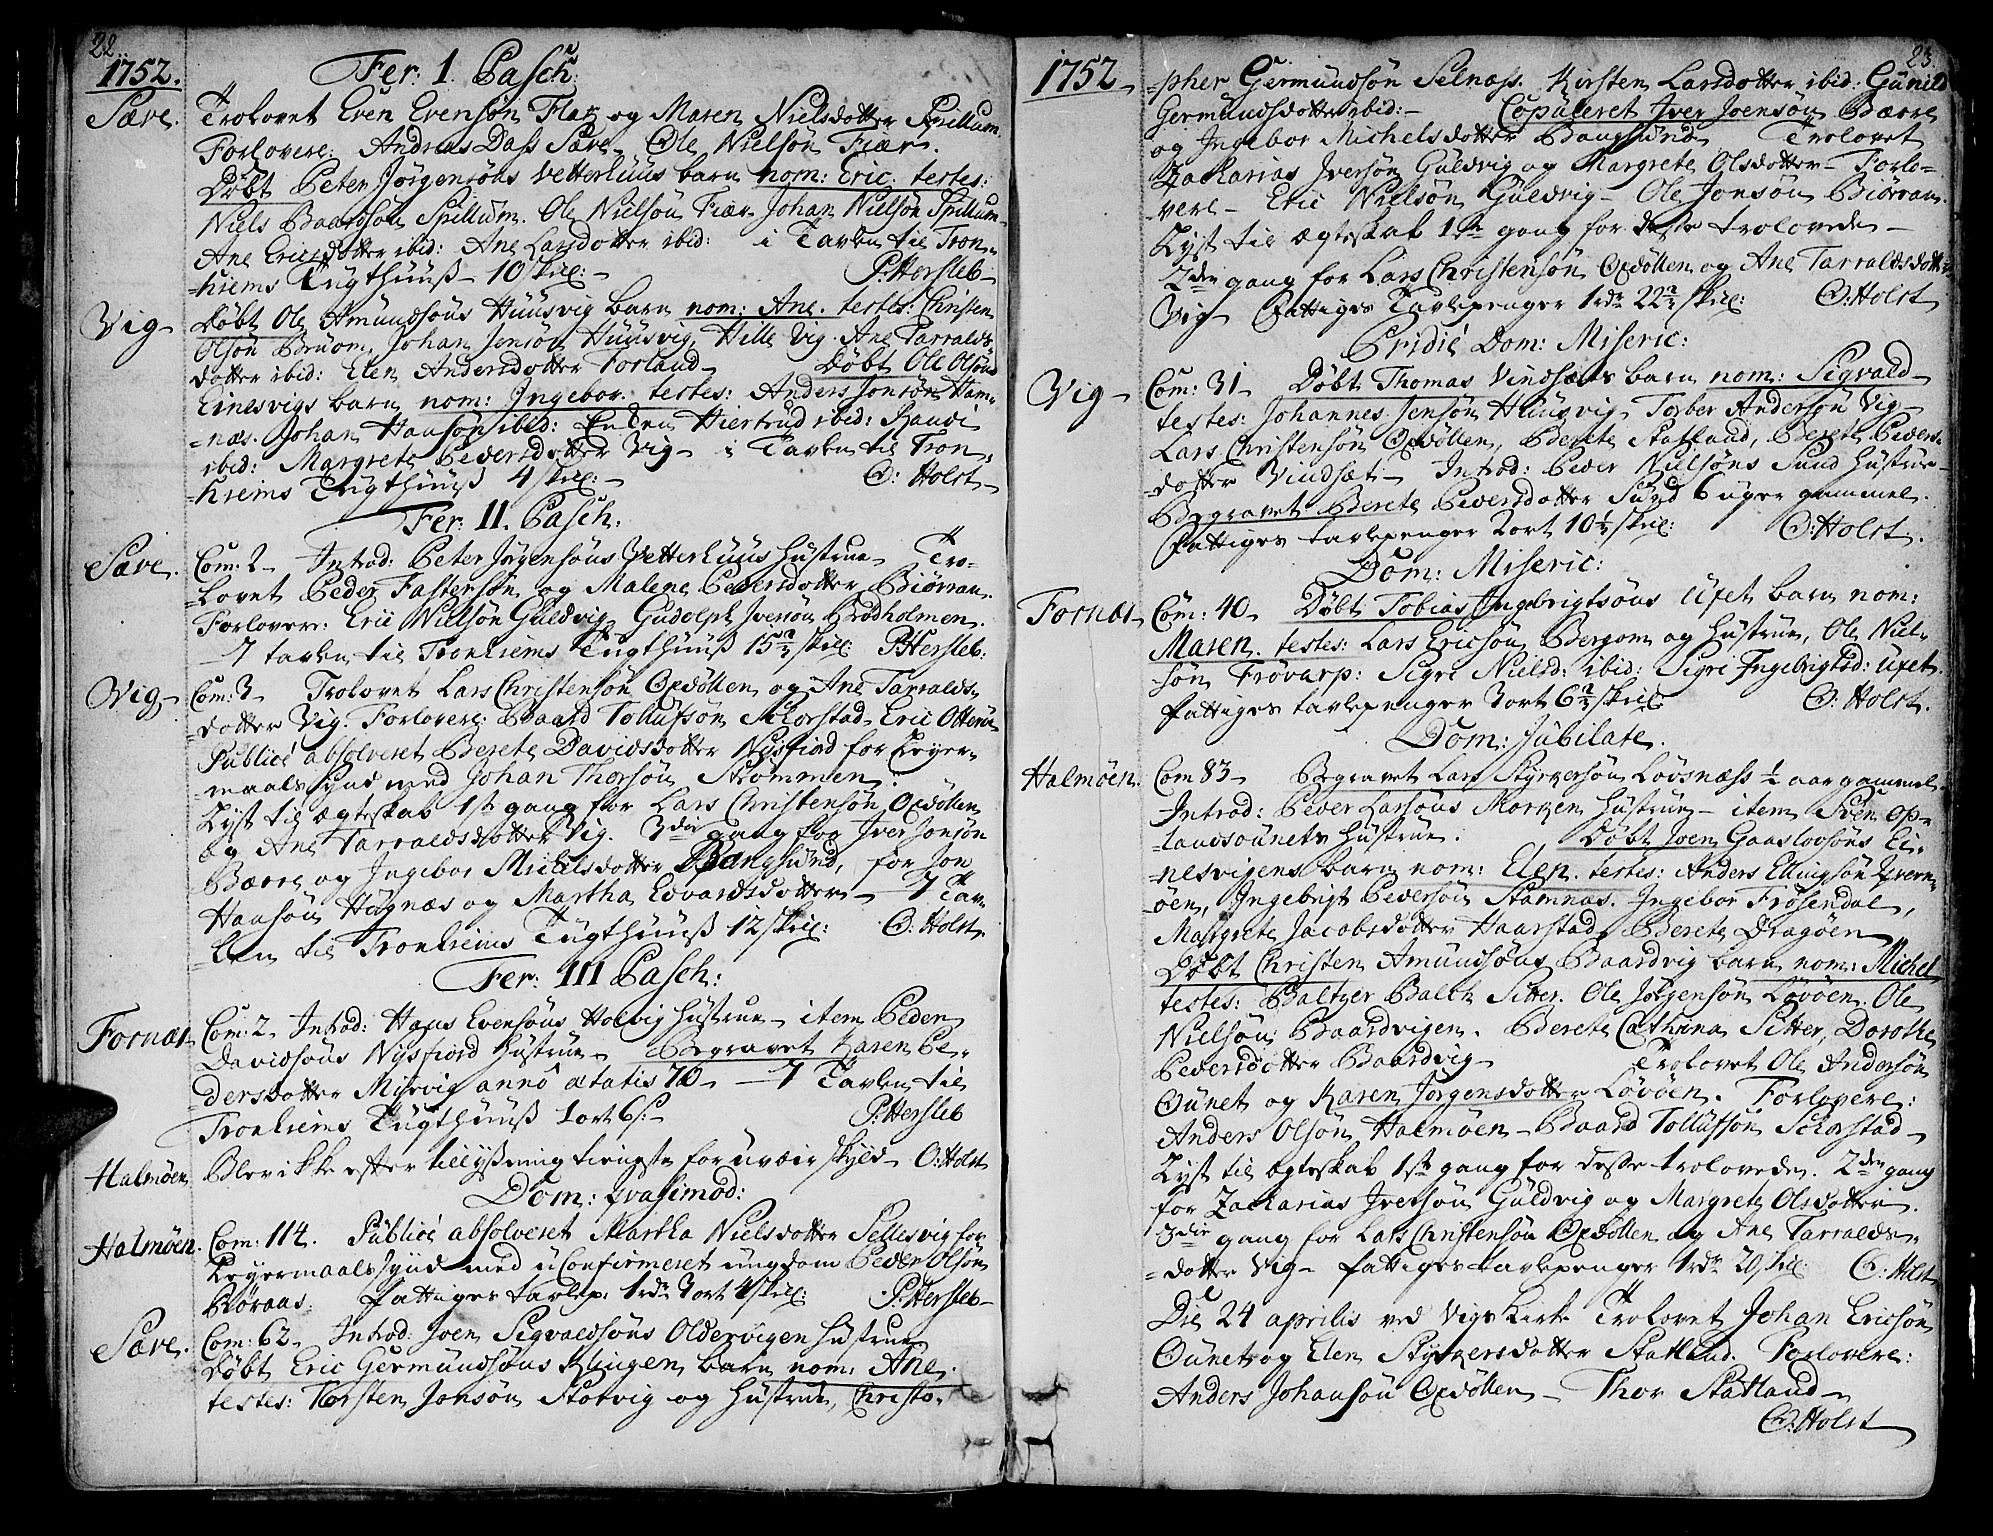 22.
1752.
Fer: 1. Pasch:
Sære. Trolovet Even Evensøn Flax og Maren Nielsdotter Spillum.
Forlovere: Andreas Dass Sære. Ole Nielsøn Fiær.
Døbt Peter Jørgensøns Vetterhuus barn nom: Eric. testes:
Niels Baardsøn Spillum. Ole Nielsøn Fiær. Johan Nielsøn Spillum.
Ane Ericsdotter ibid: Ane Larsdotter ibid: i Tavlen til Tron-
-hiems Tugthuuß 10 skil: - P. Hersleb
Vig - Døbt Ole Amundsøns Huusvig barn nom: Ane. testes: Christen
Olsøn Bruom, Johan Jensøn Huusvig, Hille Vig. Ane Tarralds
dotter ibid: Elen Andersdotter Forland. Døbt Ole Olsøns
Einesvigs barn nom: Ingebor. testes: Anders Jonsøn Ham-
-næs. Johan Hansøn ibid: Hiertrud ibid: Randi
ibid: Margrete Pedersdotter Vig - i Tavlen til Tron-
-hiems Tugthuuß 4 skil: - O: Holst
Fer: II. Pasch:
Sære. Com: 2 - Introd: Peter Jørgensøns Vetterhuus hustrue - Tro-
-lovet Peder Fastersøn og Malene Pedersdotter Biørran.
Forlovere: Eric Nielsøn Guldvig, Gudolph Iversøn Brodholmen.
- I tavlen til Tronhiems Tugthuuß 15½ skil: P. Hersleb:
Vig - Com: 3 - Trolovet Lars Christensøn Opdøllen og Ane Tarralds-
-dotter Vig. Forlovere: Baard Tollufsøn Schorstad. Eric Ottersøn
Publice absolveret Berete Davidsdotter Nysfiord for Leyer-
-maals synd med Johan Thorsøn Strømmen.
Lyst til ægteskab 1ste gang for Lars Christensøn Opdøllen
og Ane Tarraldsdotter Vig. 3die gang for Iver Joensøn
Bærre og Ingebor Michelsdotter Bangsund, for Jon
Hansøn Høgnæs og Martha Edvardsdotter - I Tav-
len til Tronhiems Tugthuuß 12 skil: O: Holst.
Fer: III Pasch:
Fornæs Com: 2 Introd: Hans Evensøns Holvig hustrue - item Peder
Davidsøns Nysfiord hustrue - Begravet Karen Pe-
dersdotter anno ætatis 70 - I Tavlen til
Tronhiems Tugthuuß 1 ort 6 s: - P. Hersleb
Halmøen Blev ikke efter tillysning tieneste for uveir skyld - O: Holst
Dom: Qvasimod:
Halmøen. Com: 114. Publice absolveret Martha Nielsdotter Sellesvig for
Leyermaals synd med uConfirmeret ungdom Peder Olsøn
Røraas. fattiges tavlep: 1 rdr 3 ort 4 skil: P. Hersleb -
Sære. Com: 62 - Introd: Joen Sigvaldsøns Oldervigen hustrue
Døbt Eric Germundsøns Klingen barn nom: Ane.
testes: Torsten Jonsøn Storvig og hustrue, Christo-
23.
1752 - -pher Germundsøn Selnæss. Kirsten Larsdotter ibid: Gunild
Germundsdotter ibid: - Copuleret Iver Joensøn Bærre
og Ingebor Michelsdotter Bangsund - Trolovet
Zacharias Iversøn Guldvig og Margrete Olsdotter - Forlo-
-vere - Eric Nielsøn Guldvig - Ole Jonsøn Biørran.
Lyst til ægteskab 1ste gang for desse trolovede -
2den gang for Lars Christensøn Opdøllen og Ane Tarraldsdotter
Vig - fattiges Tavlepenger 1 rdr 22½ skil: O: Holst
Pridie Dom: Miseric:
Vig - Com: 31 - Døbt Thomas Vindsæts barn nom: Sigvald -
testes: Johannes Jensøn Huusvig, Torber Andersøn Vig -
Lars Christensøn Opdøllen, Berete Statland, Berete Peders-
-dotter Vindsæt - Introd: Peder Nielsøns Sund hustrue -
Begravet Berete Pedersdotter Sund 6 uger gammel.
fattiges tavlepenger 2 ort 10½ skil: O: Holst.
Dom: Miseric:
Fornæs Com: 40 - Døbt Tobias Ingebrigtsøns Ufet barn nom:
Maren. testes: Lars Ericsøn Bergom og hustrue, Ole Niel-
søn Frøvarp: Sigri Nielsd: ibid: Sigri Ingebrigtsd: Ufet.
fattiges tavlepenger 3 ort 6½ skil: O: Holst.
Dom: Jubilate.
Halmøen. Com 83 - Begravet Lars Styrkersøn Løvsnæss ½ aar gammel -
Introd: Peder Larsøns Morken hustrue - item Sven Op-
-landsøunets hustrue. Døbt Joen Gaasløvsøns Ei-
-nesvigens barn nom: Elen. testes: Anders Ellingsøn Qvern-
-øen, Ingebrigt Pedersøn Stamnæs. Ingebor Frøsendal,
Margrete Jacobsdotter Haarstad, Berete Dragøen
Døbt Christen Amundsøns Baardvig barn nom: Michel
testes: Baltzer Balch Sitter. Ole Jørgensøn Løvøen. Ole
Nielsøn Baardvigen. Berete Cathrina Sitter, Dorothe
Pedersdotter Baardvig - Trolovet Ole Andersøn
Øunet og Karen Jørgensdotter Løvøen. Forlovere:
Anders Olsøn Halmøen - Baard Tollufsøn Schorstad -
Lyst til ægteskab 1ste gang for desse trolovede. 2den gang
for Zacharias Iversøn Guldvig og Margrete Olsdotter.
3die gang for Lars Christensøn Opdøllen og Ane Tarralds-
-dotter Vig - fattiges tavlepenger 1 rdr 20 skil: O: Holst
Die 24 aprilis ved Vigs Kirke Trolovet Johan Ericsøn
Øunet og Elen Styrkersdotter Statland. Forlovere:
Anders Johansøn Opdøllen - Thor Statland -
O: Holst